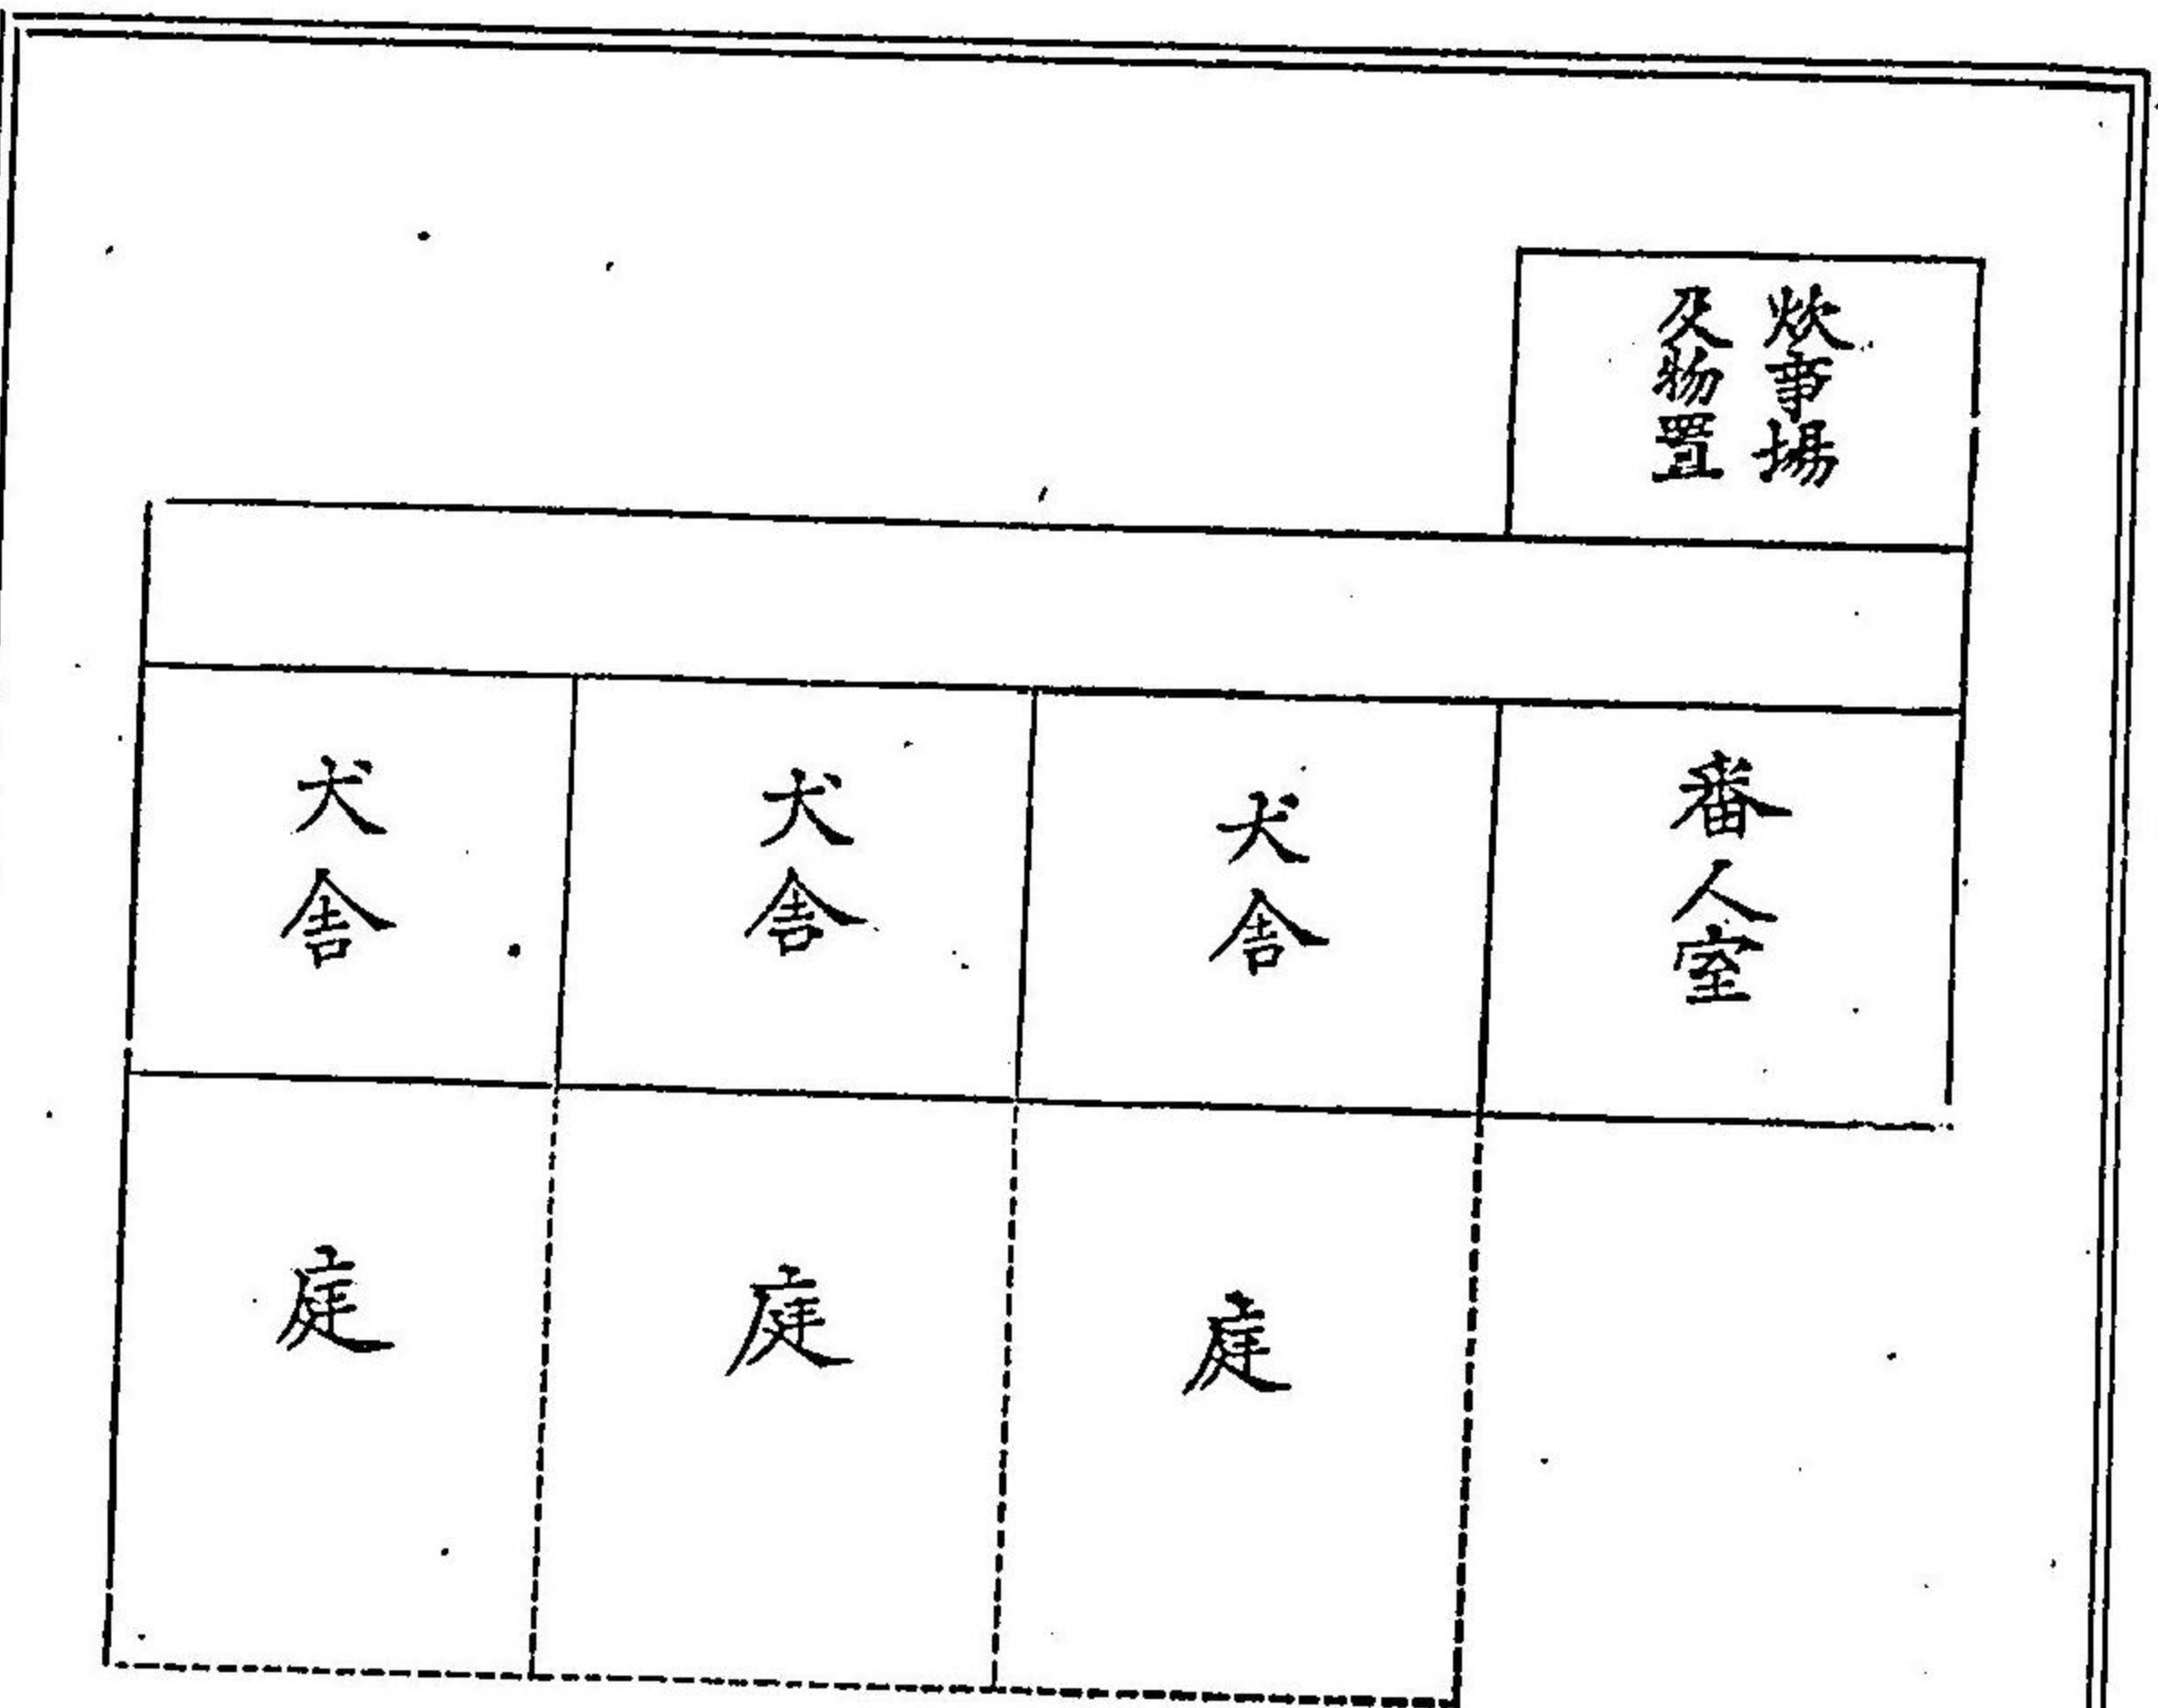 炊事場
及物置
番人室
犬舎
犬舎
犬舎
庭
庭
庭